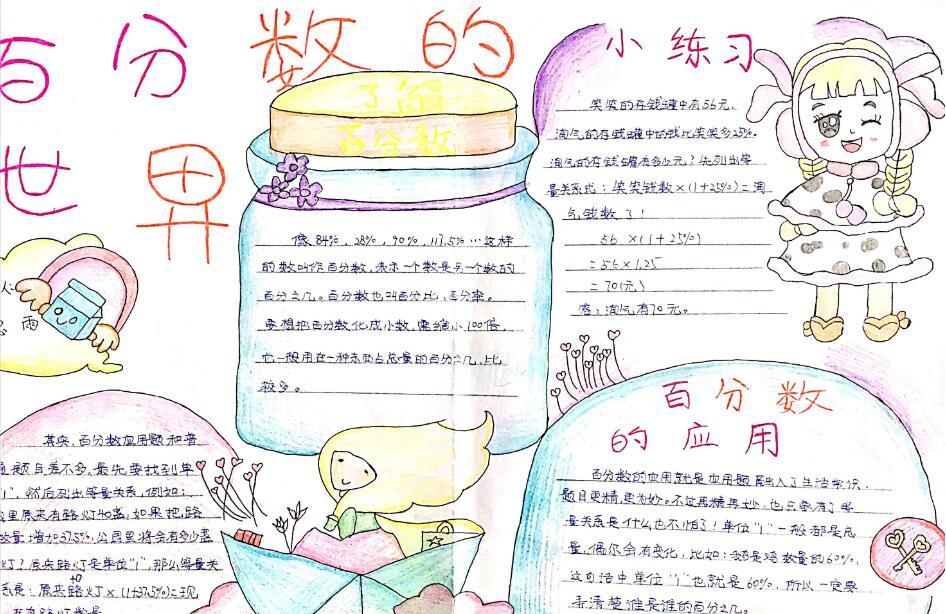 百分数的
世界
了解
百分数
像84%，28%，90%，117.5%…这样
的数叫作百分数，表示一个数是另一个数的
百分之几。百分数也叫百分比，百分率。
要想把百分数化成小数，需缩小100倍，
它一般用在一种东西占总量的百分之几，比
较多。
小练习
笑笑的存钱罐中有56元，
淘气的存钱罐中的钱比笑笑多25%。
淘气的存钱罐有多少元？先列出等
量关系式：笑笑钱数×(1+25%)=淘
气钱数了！
56×(1+25%)
=56×1.25
=70(元)
答：淘气有70元。
雨
其实，百分数应用题和普
题目差不多，最先要找到单
"1"，然后列出等量关系，例如：
里原来有路灯40盏，如果把路
数量增加37.5%，公园里将会有多少盏
灯？原来路灯是单位"1"，那么等量关
系是：原来路灯×(1+37.5%)=现
40
在路灯数量
百分数
的应用
百分数的应用就是应用题混入了生活常识，
题目更精更妙。不过再精再妙，也只要有了等
量关系是什么也不怕了！单位"1"一般都是总
量，偶尔会有变化，比如：鹅是鸡数量的60%，
这句话中单位"1"也就是60%，所以一定要
弄清楚谁是谁的百分之几。